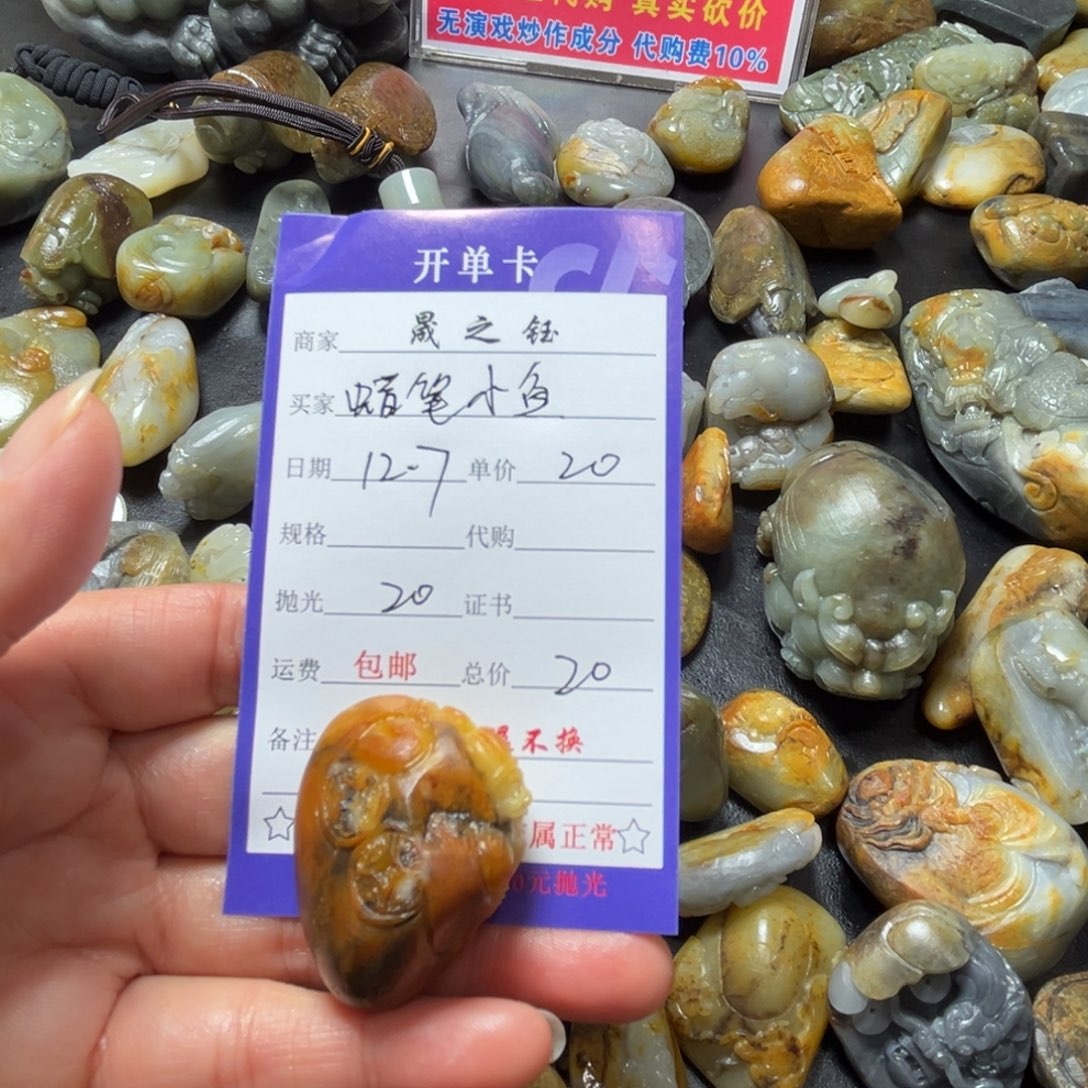 代购 真实砍价
无演戏炒作成分 代购费10%
开单卡
商家 晟之钰
买家 蜡笔小鱼
日期 12.7 单价 20
规格 代购
抛光 20 证书
运费 包邮 总价 20
备注 不换
属正常
0元抛光